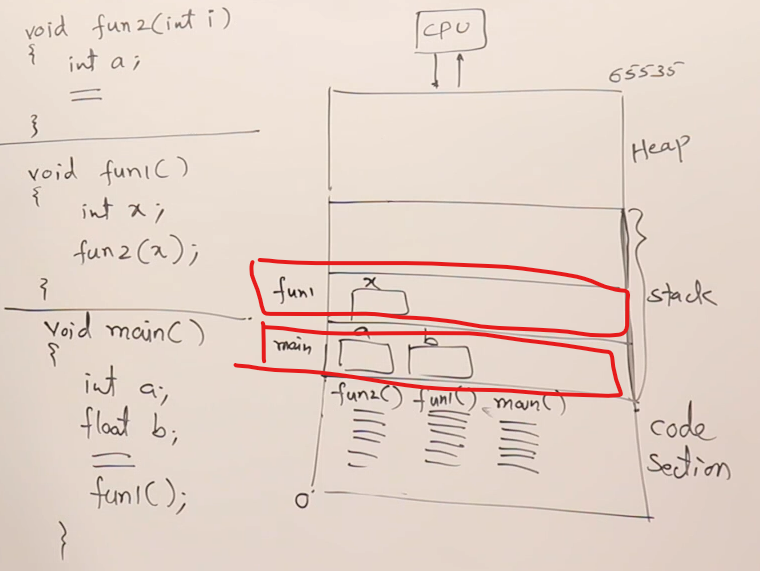 void fun2(int i)
{
int a;
}
void fun1()
{
int x;
fun2(x);
}
void main()
{
int a;
float b;
fun1();
}
CPU
65535
Heap
stack
fun1
x
main
a
b
fun2() fun1() main()
code
section
0